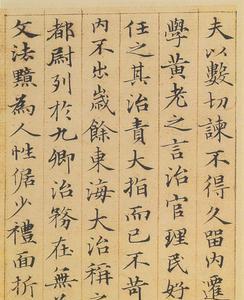 夫以數切諫不得久留內遷
學黃老之言治官理民好
任之其治責大指而已不苛
內不出歲餘東海大治稱之
都尉列於九卿治務在無
文法黯為人性倨少禮面折